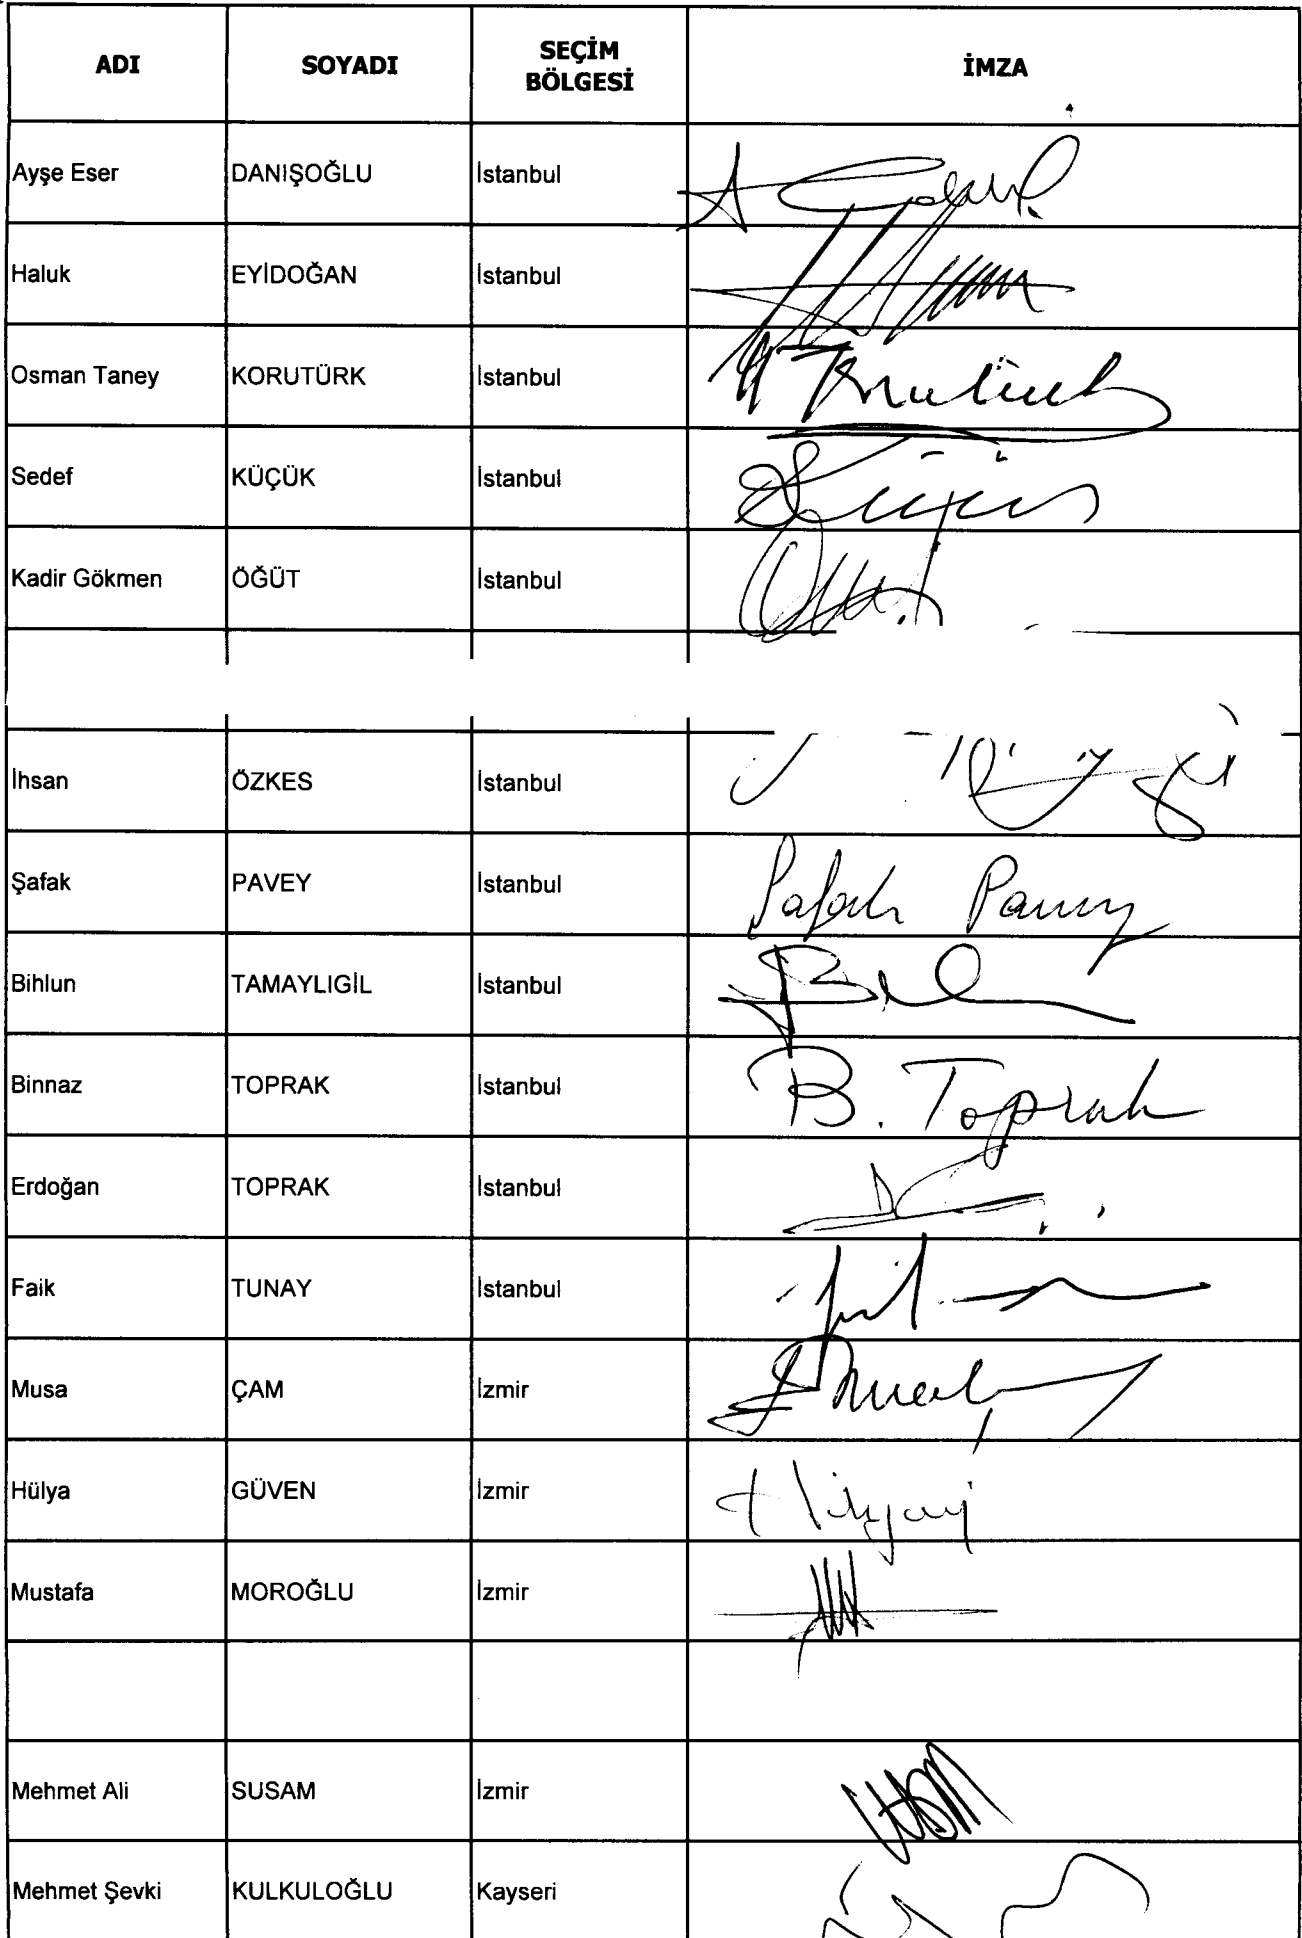 ADI SOYADI SEÇİM BÖLGESİ İMZA
Ayşe Eser DANIŞOĞLU İstanbul
Haluk EYİDOĞAN İstanbul
Osman Taney KORUTÜRK İstanbul
Sedef KÜÇÜK İstanbul
Kadir Gökmen ÖĞÜT İstanbul
İhsan ÖZKES İstanbul
Şafak PAVEY İstanbul Şafak Pavey
Bihlun TAMAYLIGİL İstanbul
Binnaz TOPRAK İstanbul B. Toprak
Erdoğan TOPRAK İstanbul
Faik TUNAY İstanbul
Musa ÇAM İzmir
Hülya GÜVEN İzmir
Mustafa MOROĞLU İzmir
Mehmet Ali SUSAM İzmir
Mehmet Şevki KULKULOĞLU Kayseri